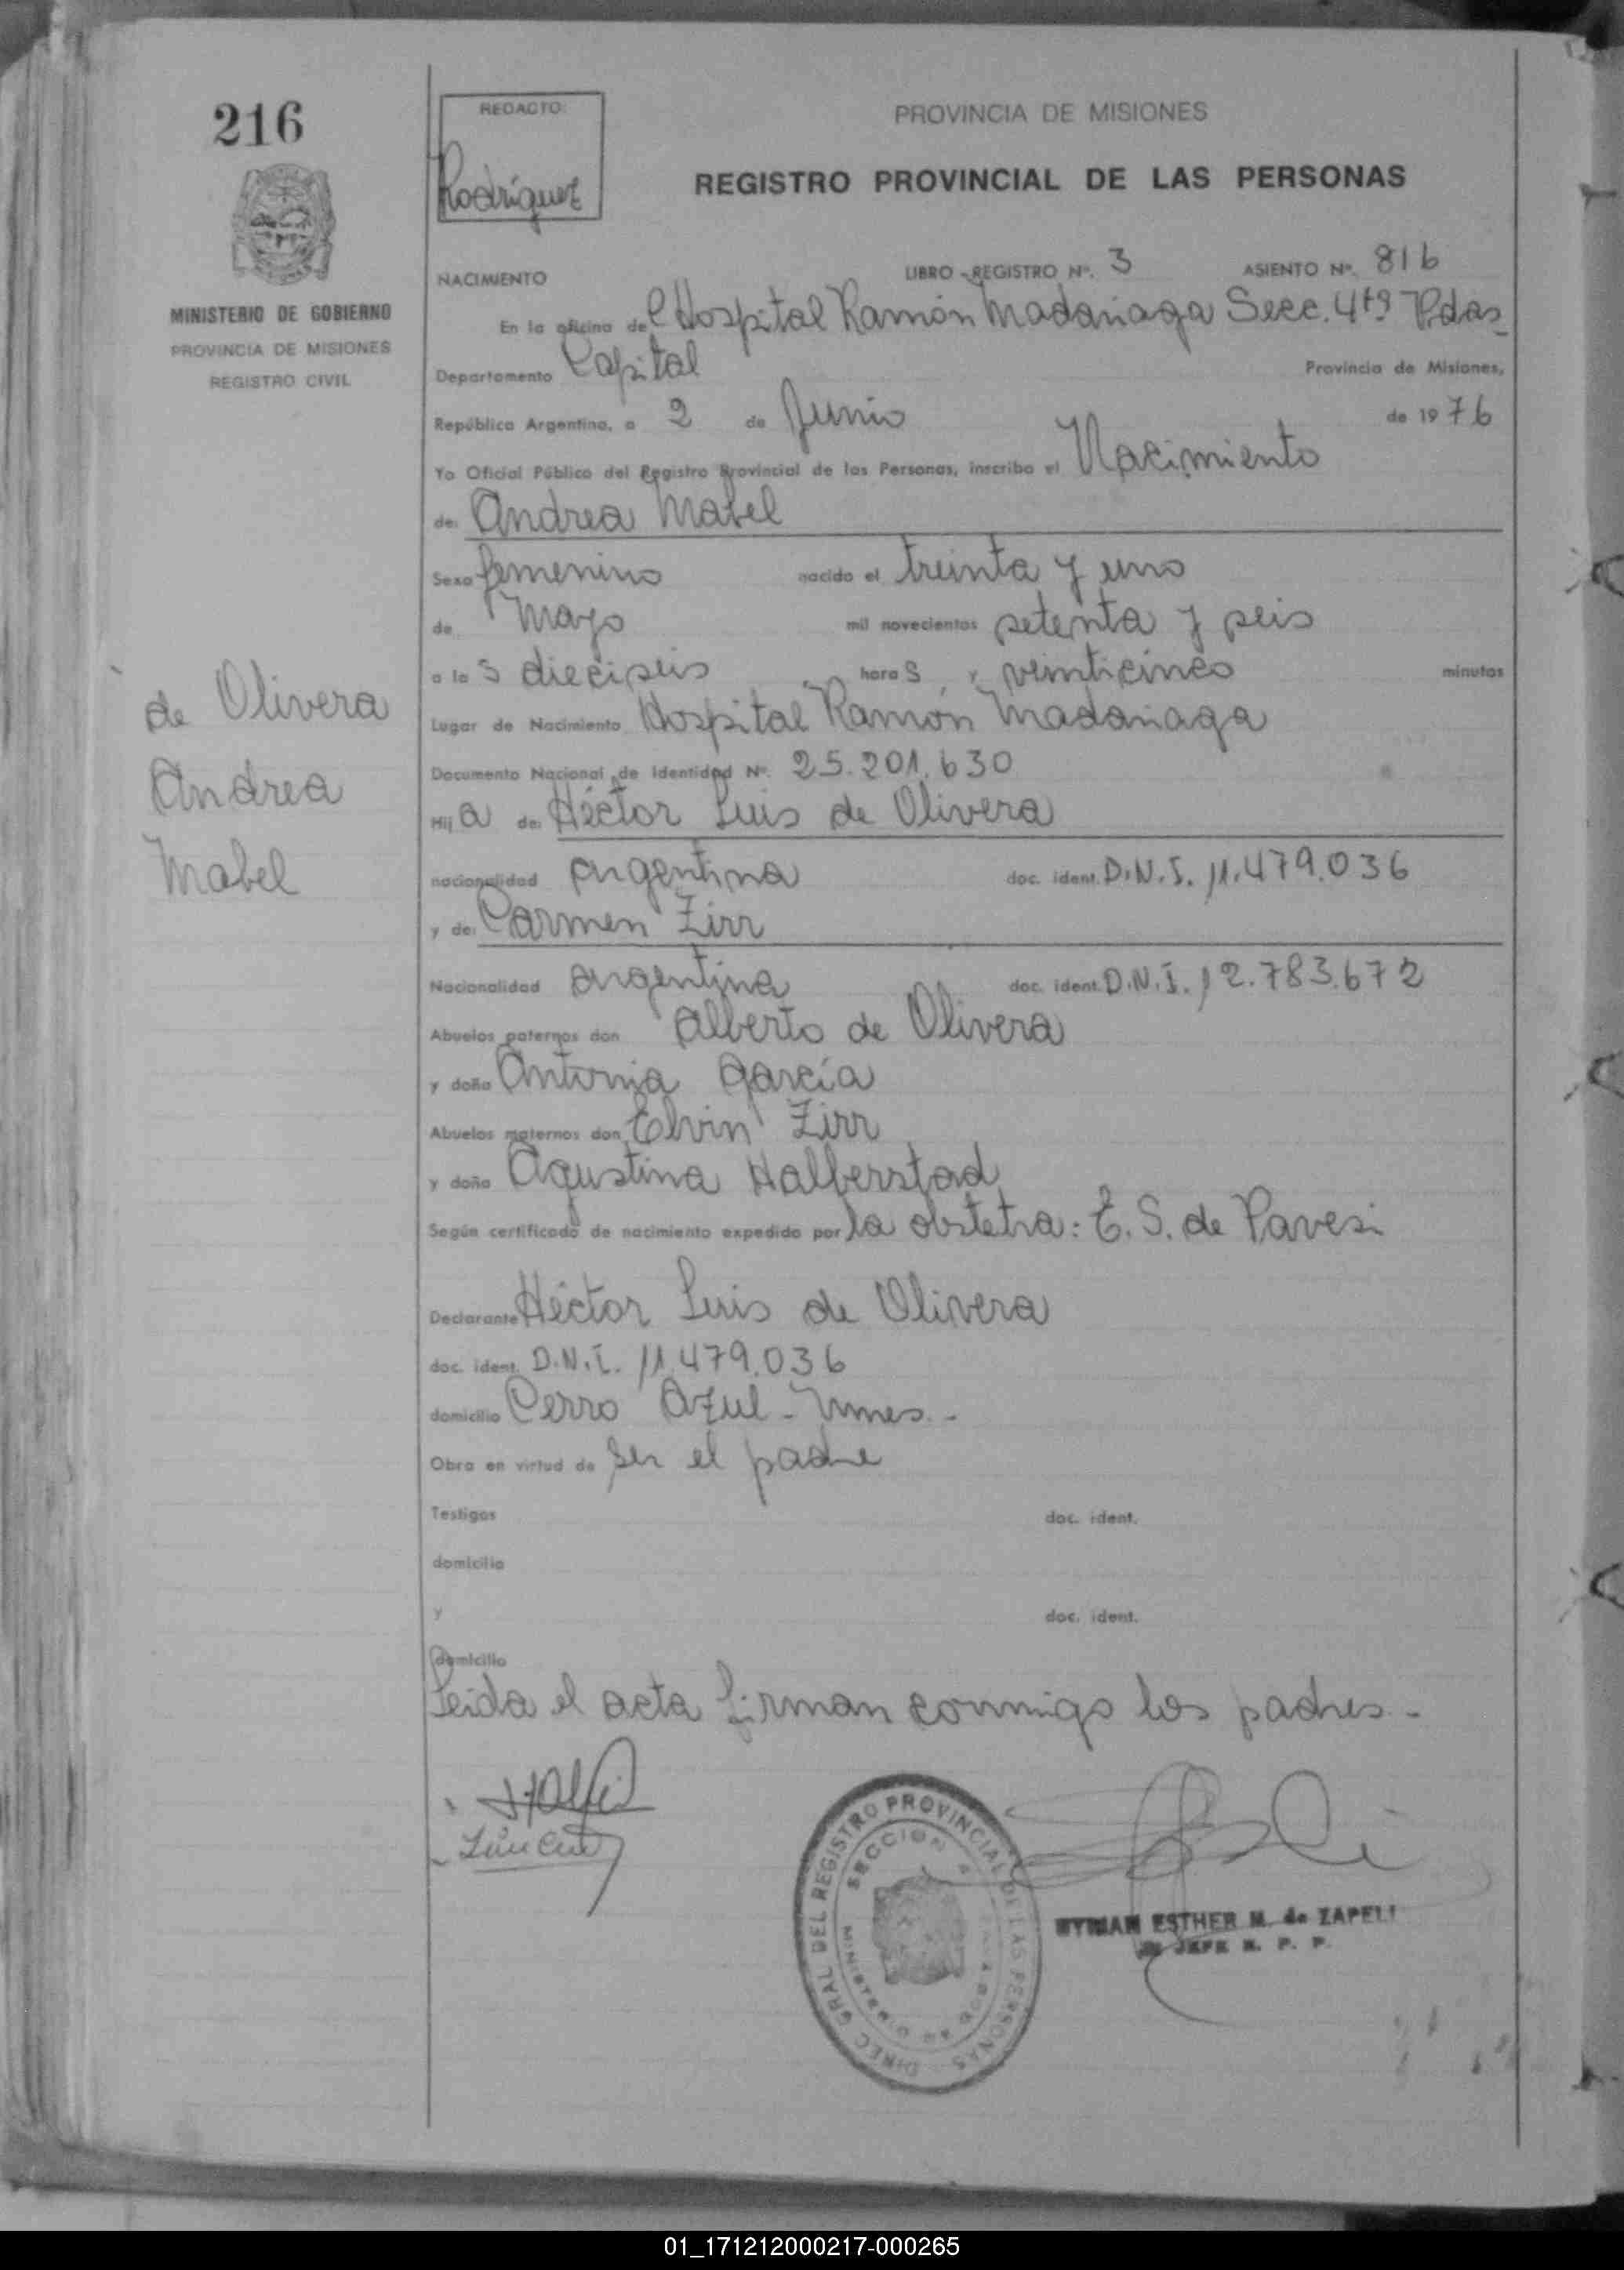 216
REDACTO:
Rodríguez
PROVINCIA DE MISIONES
REGISTRO PROVINCIAL DE LAS PERSONAS
MINISTERIO DE GOBIERNO
PROVINCIA DE MISIONES
REGISTRO CIVIL
NACIMIENTO LIBRO - REGISTRO Nº. 3 ASIENTO Nº. 816
En la oficina del Hospital Ramón Madariaga Secc. 4ta Pdas
Departamento Capital Provincia de Misiones,
República Argentina, a 2 de Junio de 1976
Yo Oficial Público del Registro Provincial de las Personas, inscribo el Nacimiento
de: Andrea Mabel
Sexo femenino nacido el treinta y uno
de Mayo mil novecientos setenta y seis
a las dieciseis horas y veinticinco minutos
Lugar de Nacimiento Hospital Ramón Madariaga
Documento Nacional de Identidad Nº. 25.201.630
Hija de: Héctor Luis de Olivera
nacionalidad argentina doc. ident. D.N.I. 11.479.036
y de: Carmen Zirr
Nacionalidad argentina doc. ident. D.N.I. 12.783.672
Abuelos paternos don Alberto de Olivera
y doña Antonia García
Abuelos maternos don Elvin Zirr
y doña Agustina Halberstad
Según certificado de nacimiento expedido por la obstetra: E. S. de Pavesi
Declarante Héctor Luis de Olivera
doc. ident. D.N.I. 11.479.036
domicilio Cerro Azul - Mnes. -
Obra en virtud de ser el padre
Testigos doc. ident.
domicilio
y doc. ident.
domicilio
Leida el acta firman conmigo los padres. -
de Olivera
Andrea
Mabel
DIREC. GRAL. DEL REGISTRO PROVINCIAL DE LAS PERSONAS
SECCION 4
MINISTERIO DE GOBIERNO
MYRIAM ESTHER M. de ZAPELI
JEFE R. P. P.
01_171212000217-000265